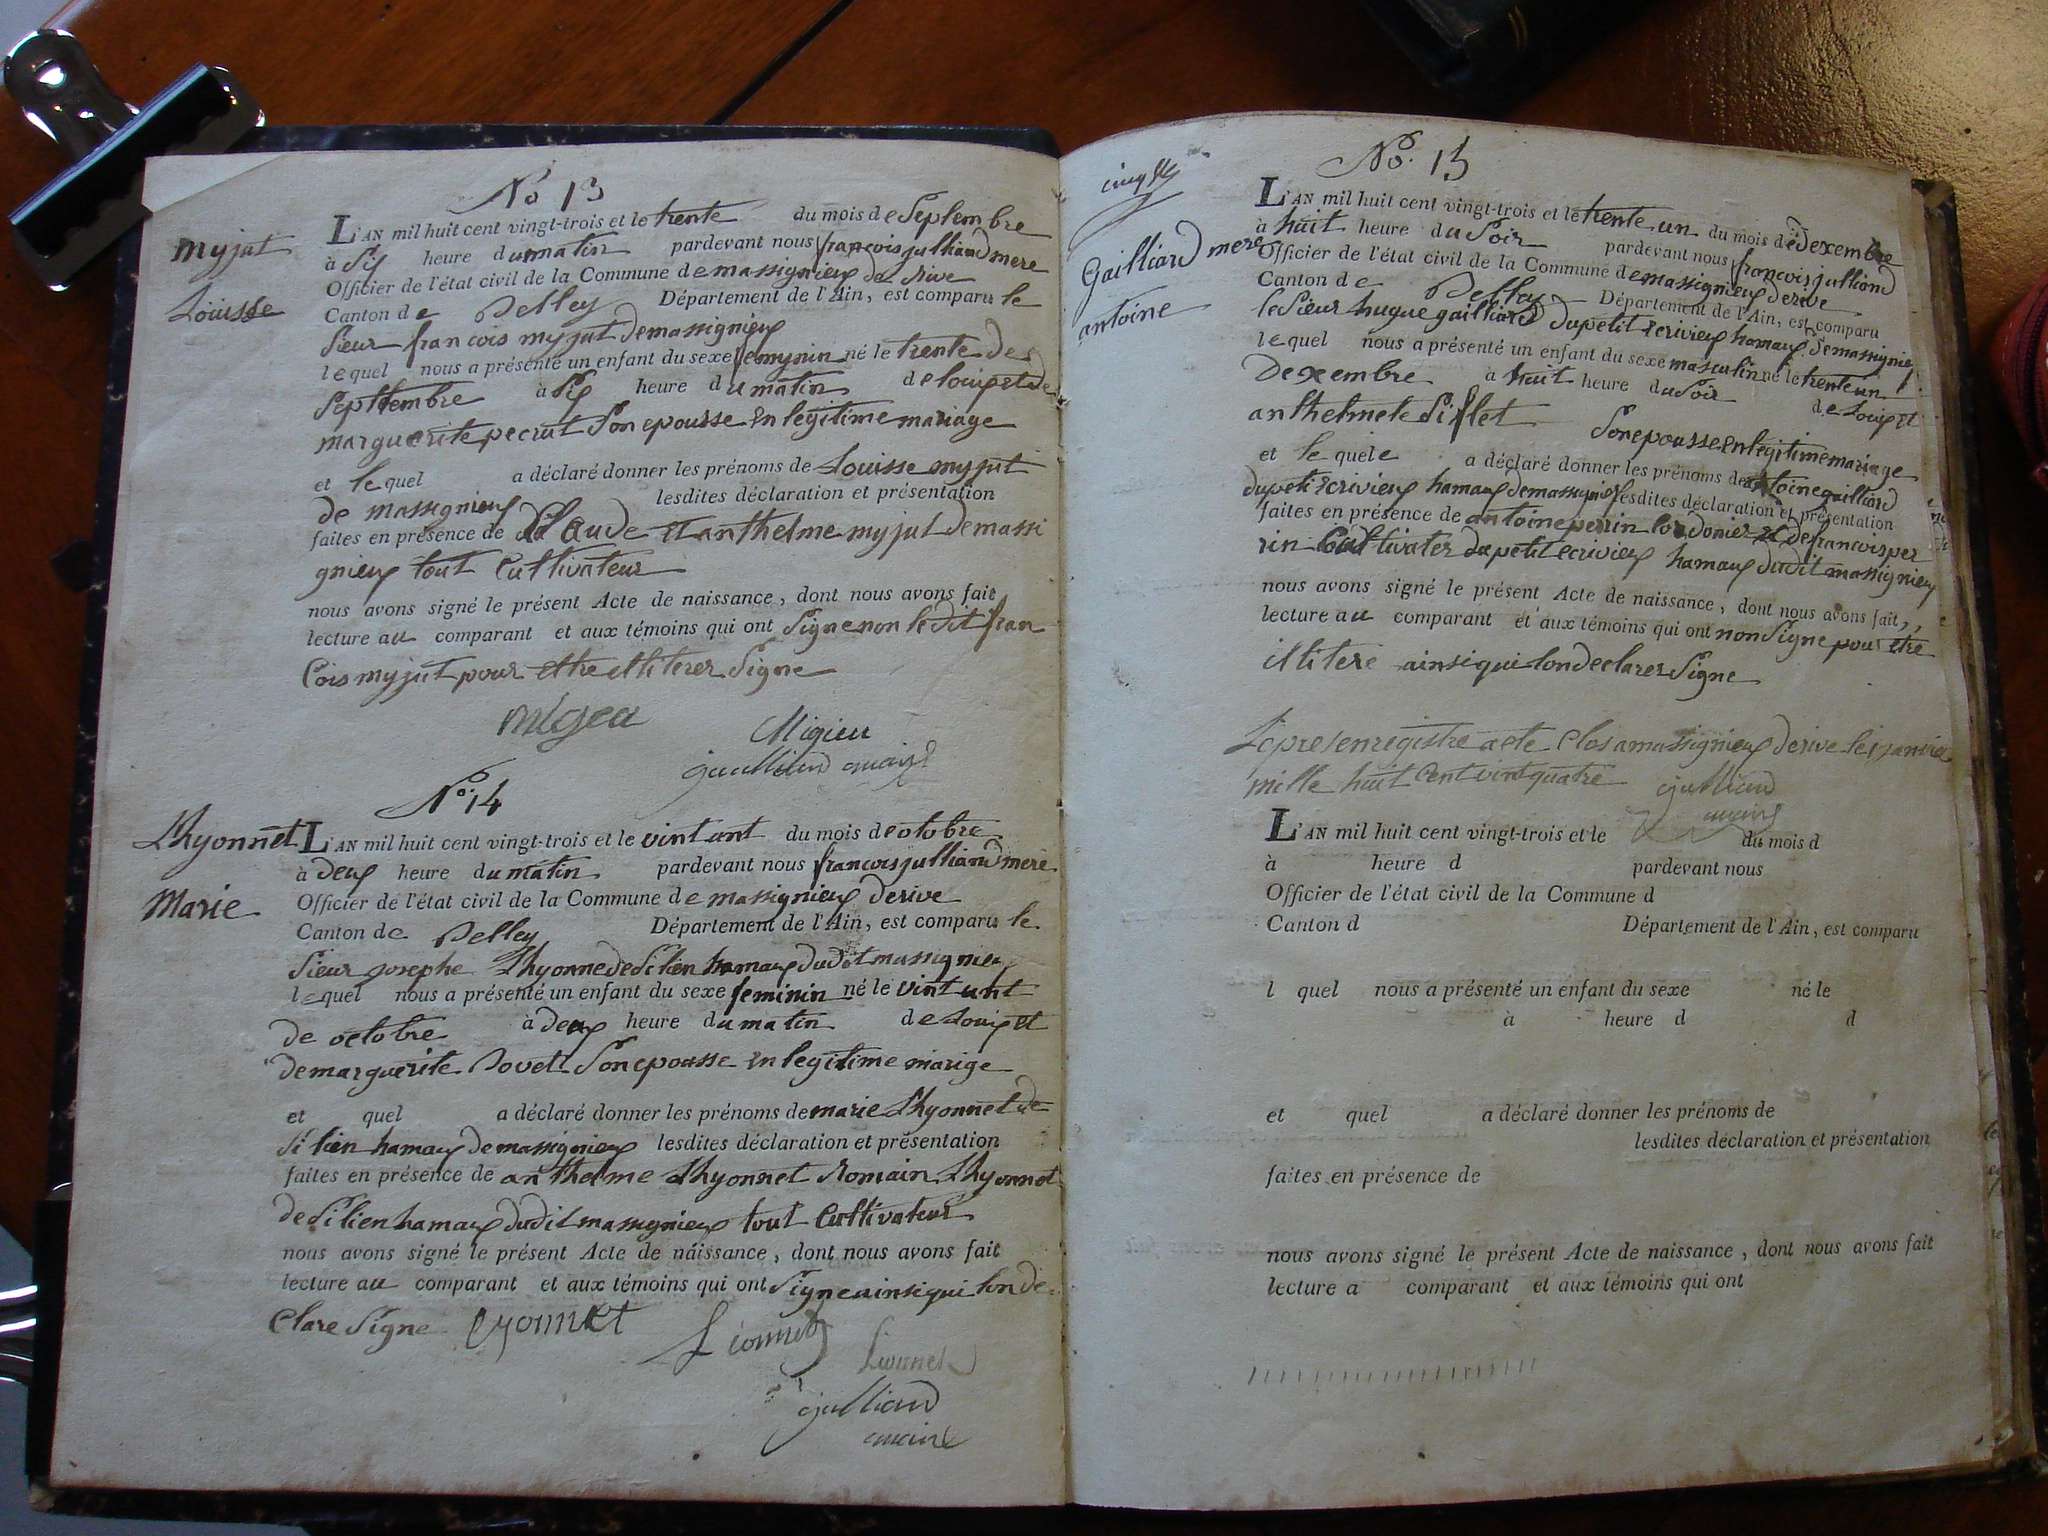 No 13
myjut
Louisse
L'AN mil huit cent vingt-trois et le trente du mois de Septembre
à Six heure du matin pardevant nous francois julliand mere
Officier de l'état civil de la Commune de massignieux de rive
Canton de Belley Département de l'Ain, est comparu le
Sieur francois myjut de massignieux
lequel nous a présenté un enfant du sexe femynin né le trente de
Septtembre à Six heure du matin de louipet de
marguerite pecrut Son epousse en legitime mariage
et le quel a déclaré donner les prénoms de Louisse myjut
de massignieux lesdites déclaration et présentation
faites en présence de Claude et anthelme myjut de massi
gnieux tout Cultivateur
nous avons signé le présent Acte de naissance, dont nous avons fait
lecture au comparant et aux témoins qui ont Signe non le dit fran
Cois myjut pour ettre illiterer Signe
migea
Migieu
julliand maire
No. 14
Lhyonnet
Marie
L'AN mil huit cent vingt-trois et le vint unt du mois de otobre
à deux heure du matin pardevant nous francois julliand mere
Officier de l'état civil de la Commune de massignieux derive
Canton de Belley Département de l'Ain, est comparu le
Sieur josephe Lhyonne de Silien hamaux dudit massignieux
lequel nous a présenté un enfant du sexe feminin né le vint unt
de octobre à deux heure du matin de Louip et
de marguerite Bovet Son epousse en legitime marige
et quel a déclaré donner les prénoms de marie Lhyonnet de
Silien hamaux de massignieux lesdites déclaration et présentation
faites en présence de anthelme Lhyonnet Romain Lhyonnet
de Silien hamaux dudit massignieux tout Cultivateur
nous avons signé le présent Acte de naissance, dont nous avons fait
lecture au comparant et aux témoins qui ont Signe ainsi qui lon de
Clare Signe Lyonnet
Lionnet
Lionnet
julliand
maire
No. 15
Gailliard mere
antoine
L'AN mil huit cent vingt-trois et le trente un du mois de dexembre
à huit heure du Soir pardevant nous francois julliand
Officier de l'état civil de la Commune de massignieux derive
Canton de Belley Département de l'Ain, est comparu
le Sieur hugue gailliard du petit ecrivieux hamaux de massignieux
lequel nous a présenté un enfant du sexe masculin né le trente un
Dexembre à huit heure du Soir de Louip et
anthelmete Siflet Son epousse en legitime mariage
et le quele a déclaré donner les prénoms de antoine gailliard
du peti ecrivieux hamaux de massignieux lesdites déclaration et présentation
faites en présence de antoine perrin Cordonier et de francois per
rin Cultivater du petit ecrivieux hamaux dudit massignieux
nous avons signé le présent Acte de naissance, dont nous avons fait,
lecture au comparant et aux témoins qui ont non Signe pour etre
illiteré ainsi qui lon declarer Signe
Le presen registre acte Clos a massignieux de rive le 1 janvier
mille huit Cent vint quatre julliand
maire
L'AN mil huit cent vingt-trois et le du mois d
à heure d pardevant nous
Officier de l'état civil de la Commune d
Canton d Département de l'Ain, est comparu
l quel nous a présenté un enfant du sexe né le
à heure d d
et quel a déclaré donner les prénoms de
lesdites déclaration et présentation
faites en présence de
nous avons signé le présent Acte de naissance, dont nous avons fait
lecture a comparant et aux témoins qui ont